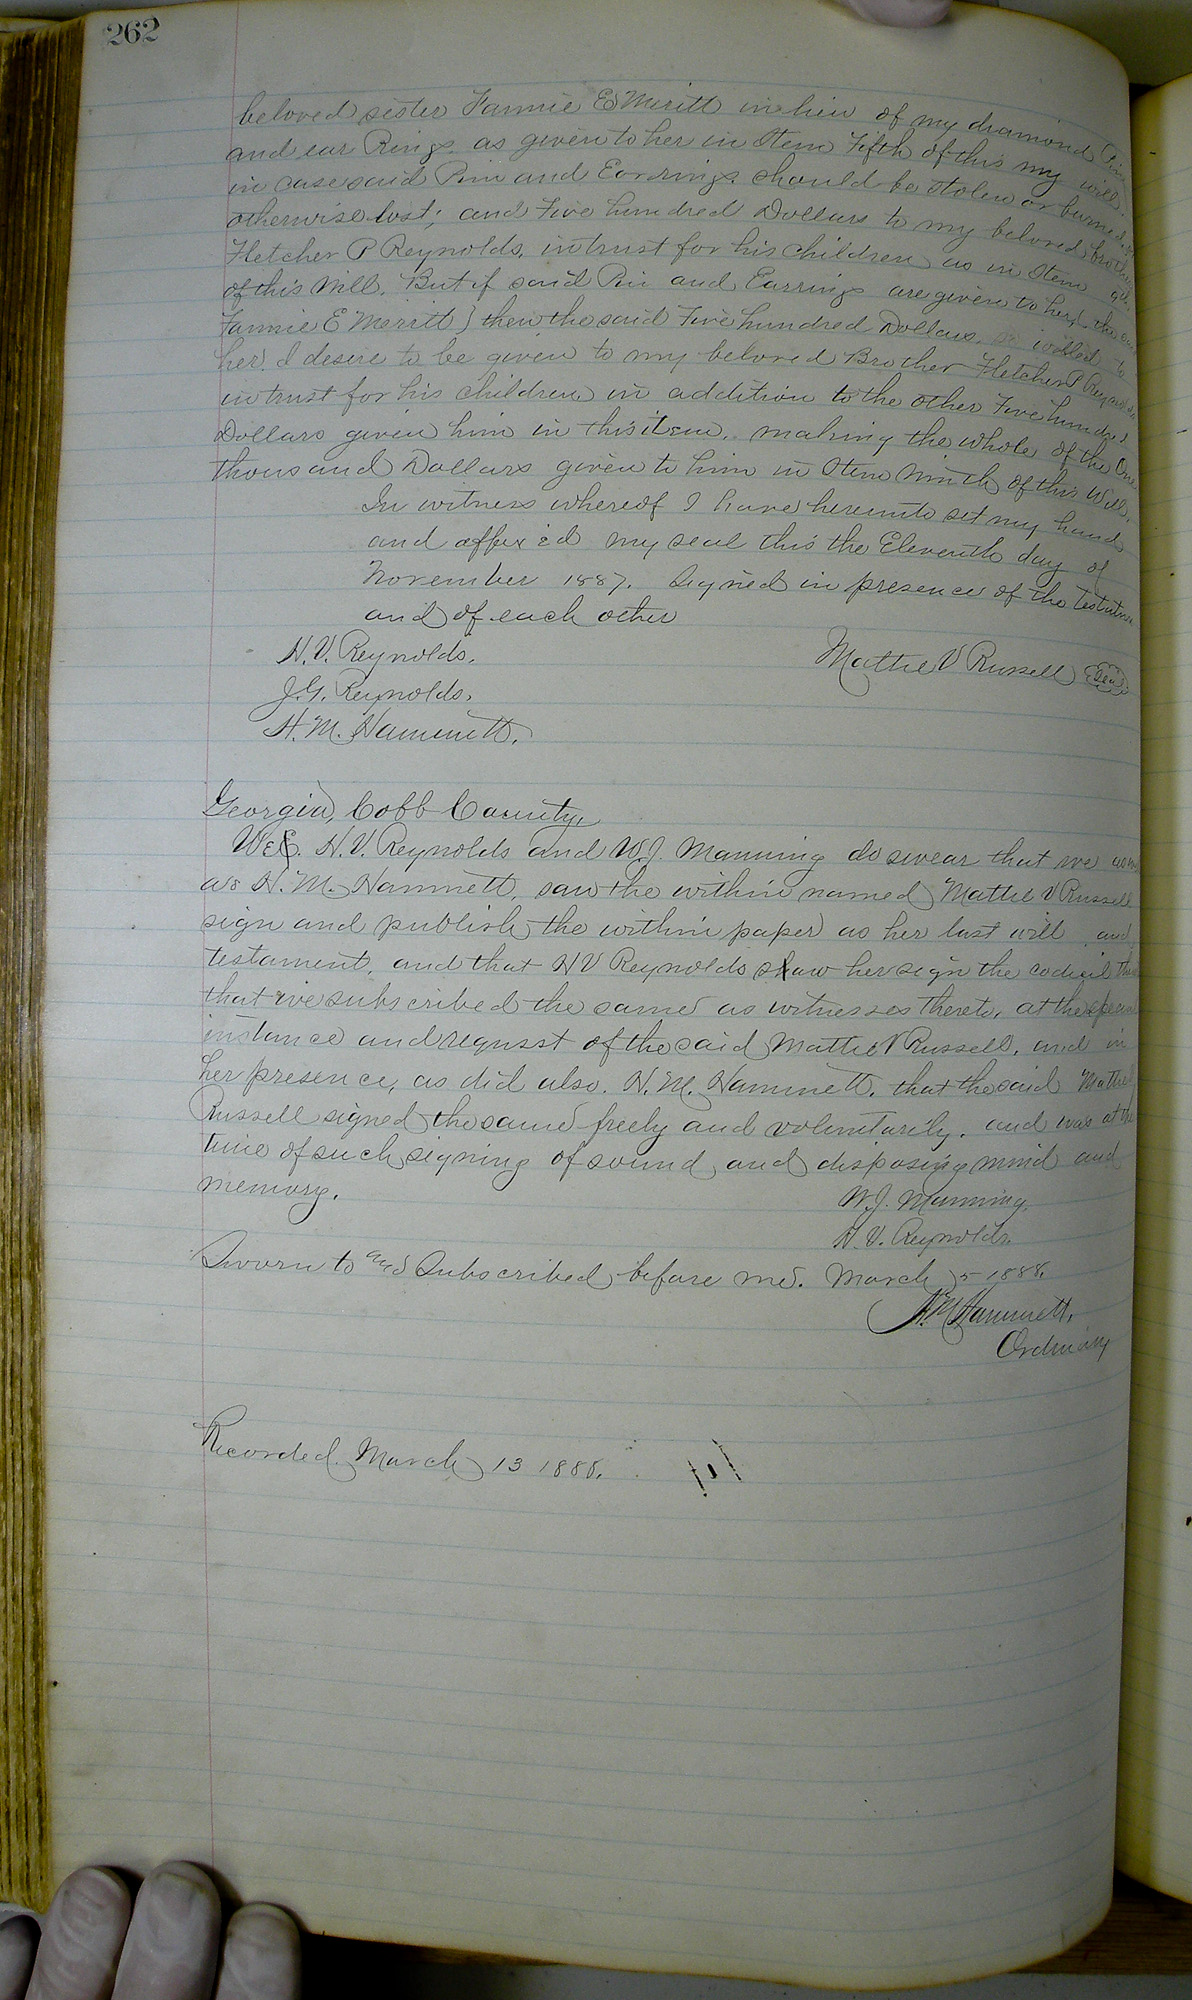 262
beloved sister Fannie E Meritt in lieu of my diamond Pin
and ear Rings, as given to her in Item Fifth of this my will
in case said Pin and Earrings should be stolen or burned
otherwise lost; and Five hundred Dollars to my beloved brother
Fletcher P Reynolds, in trust for his children as in Item 9th
of this Will. But if said Pin and Earrings are given to her, the said
Fannie E Merritt) then the said Five hundred Dollars willed to
her I desire to be given to my beloved Brother Fletcher P Reynolds
in trust for his children in addition to the other Five hundred
Dollars given him in this item, making the whole of the One
thousand Dollars given to him in Item Ninth of this Will.
In witness whereof I have hereunto set my hand
and affixed my seal this the Eleventh day of
November 1887. Signed in presence of the testatrix
and of each other
H. V. Reynolds. Mattie V Russell Seal
J. G. Reynolds.
H. M. Hammett.
Georgia, Cobb County.
We H. V. Reynolds and W. J. Manning do swear that we
as H. M. Hammett, saw the within named Mattie V Russell
sign and publish the within paper as her last will and
testament, and that H V Reynolds saw her sign the codicil
that we subscribed the same as witnesses thereto, at the special
instance and requsst of the said Mattie V Russell, and in
her presence, as did also. H. M. Hammett. that the said Mattie
Russell signed the same freely and voluntarily, and was at the
time of such signing of sound and disposing mind and
memory. W. J. Manning.
H. V. Reynolds.
Sworn to and Subscribed before me. March 5 1888.
H. M. Hammett,
Ordinary
Recorded March 13 1888.